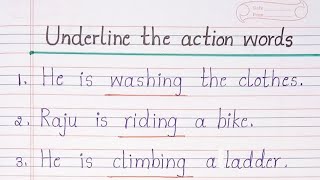 Underline the action words
1. He is washing the clothes.
2. Raju is riding a bike.
3. He is climbing a ladder.